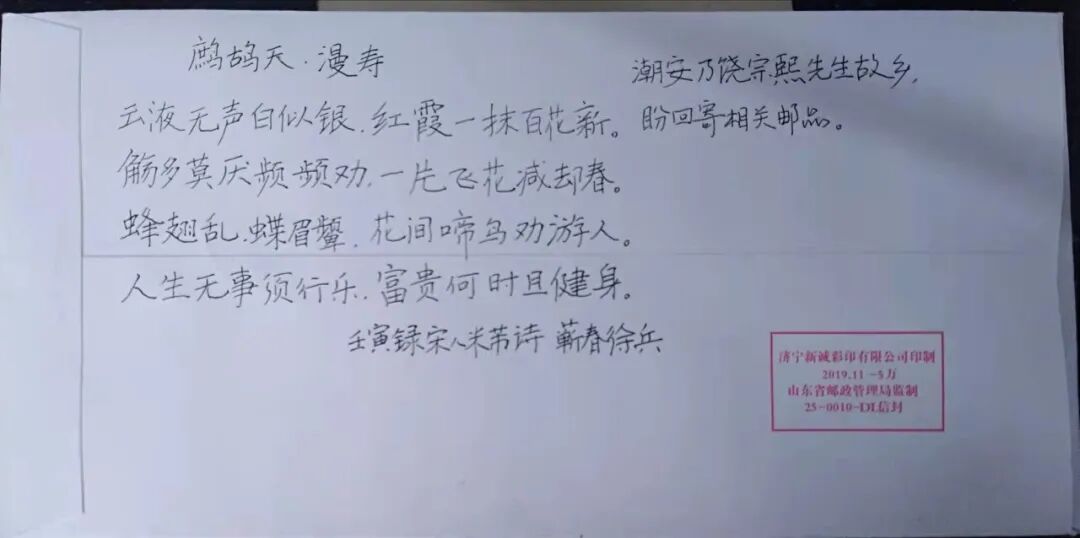 鹧鸪天·漫寿
云液无声白似银,红霞一抹百花新。
觞多莫厌频频劝,一片飞花减却春。
蜂翅乱,蝶眉颦,花间啼鸟劝游人。
人生无事须行乐,富贵何时且健身。
壬寅录宋人米芾诗 蕲春徐兵
潮安乃饶宗熙先生故乡,
盼回寄相关邮品。
济宁新诚彩印有限公司印制
2019.11 -5万
山东省邮政管理局监制
25-0010-DL信封